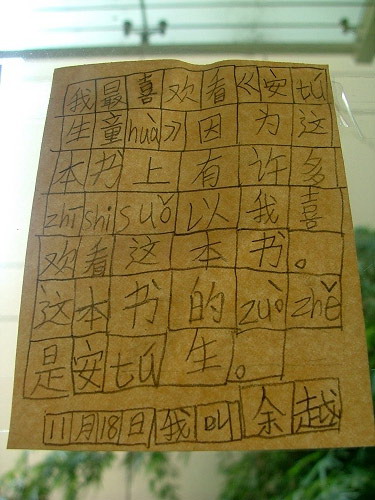 我最喜欢看《安tú
生童huà》因为这
本书上有许多
zhī shi suǒ以我喜
欢看这本书。
这本书的zuò zhě
是安tú生。
11月18日我叫余越